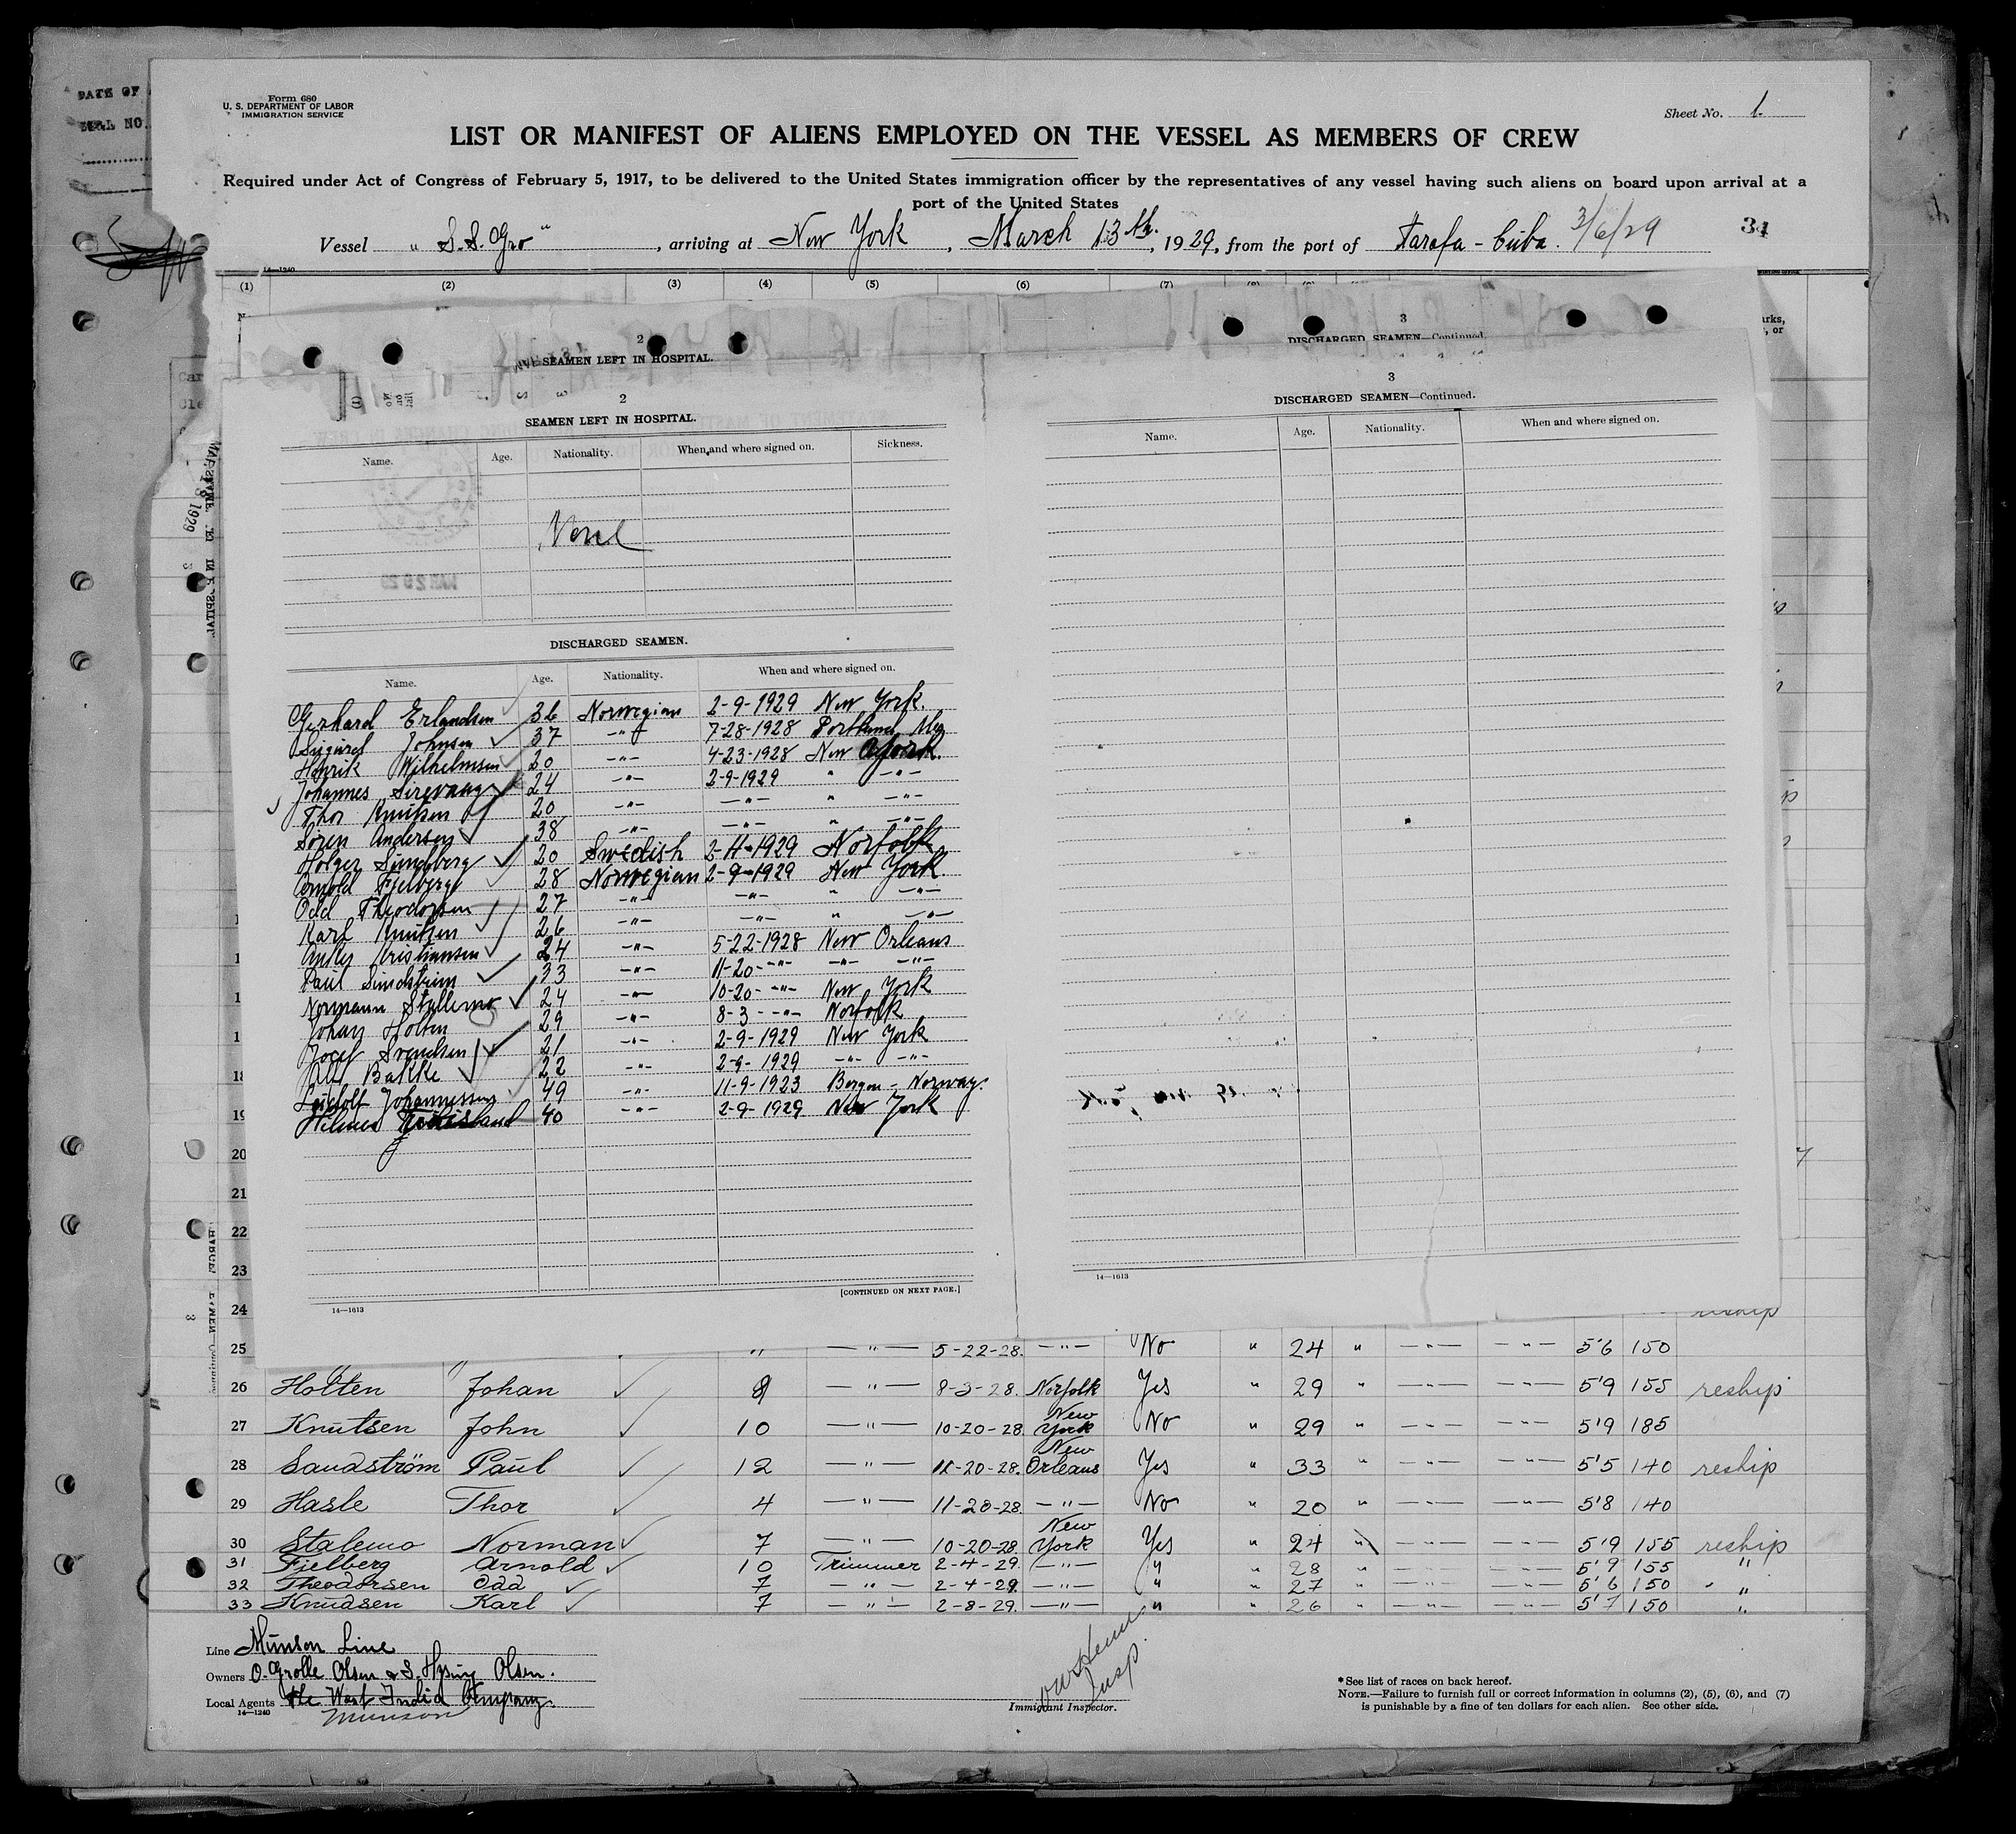 Form 680
U. S. DEPARTMENT OF LABOR
IMMIGRATION SERVICE
Sheet No. 1.
LIST OR MANIFEST OF ALIENS EMPLOYED ON THE VESSEL AS MEMBERS OF CREW
Required under Act of Congress of February 5, 1917, to be delivered to the United States immigration officer by the representatives of any vessel having such aliens on board upon arrival at a
port of the United States
Vessel "S.S. Gro", arriving at New York, March 13th, 1929, from the port of Tarafa - Cuba. 3/6/29
34
14—1240
(1) (2) (3) (4) (5) (6) (7)
2
SEAMEN LEFT IN HOSPITAL.
3
DISCHARGED SEAMEN—Continued.
2
SEAMEN LEFT IN HOSPITAL.
Name. Age. Nationality. When and where signed on. Sickness.
None
DISCHARGED SEAMEN.
Name. Age. Nationality. When and where signed on.
Gerhard Erlandsen 36 Norwegian 2-9-1929 New York.
Sigurd Johnsen 37 -"- 7-28-1928 Portland, Me
Henrik Wilhelmsen 20 -"- 4-23-1928 New York.
Johannes Sirevaag 24 -"- 2-9-1929 " -"-
Thor Knutsen 20 -"- -"- " -"-
Sören Andersen 38 -"- -"- " -"-
Holger Sundberg 20 Swedish 2-11-1929 Norfolk
Arnold Fjelberg 28 Norwegian 2-9-1929 New York.
Odd Theodorsen 27 -"- -"- " -"-
Karl Knutsen 26 -"- -"- " -"-
Kristiansen 24 -"- 5-22-1928 New Orleans
Paul Sundström 33 -"- 11-20- -"- -"- -"-
Normann Stallemo 24 -"- 10-20- -"- New York
Johan Holten 29 -"- 8-3- -"- Norfolk
Josef Svendsen 21 -"- 2-9-1929 New York
Alf Bakke 22 -"- 2-9-1929 -"- -"-
Leidolf Johannessen 49 -"- 11-9-1923 Bergen - Norway.
Hilmer 40 -"- 2-9-1929 New York
[CONTINUED ON NEXT PAGE.]
14—1613
3
DISCHARGED SEAMEN—Continued.
Name. Age. Nationality. When and where signed on.
14—1613
18
19
20
21
22
23
24 reship
25 " —"— 5-22-28. —"— No " 24 " —"— —"— 5'6 150
26 Holten Johan 9 —"— 8-3-28. Norfolk Yes " 29 " —"— —"— 5'9 155 reship
27 Knutsen John 10 —"— 10-20-28. New York No " 29 " —"— —"— 5'9 185
28 Sandström Paul 12 —"— 11-20-28. New Orleans Yes " 33 " —"— —"— 5'5 140 reship
29 Hasle Thor 4 —"— 11-20-28. —"— No " 20 " —"— —"— 5'8 140
30 Stalemo Norman 7 —"— 10-20-28. New York Yes " 24 " —"— —"— 5'9 155 reship
31 Fjelberg Arnold 10 Trimmer 2-4-29. —"— " " 28 " —"— —"— 5'9 155 "
32 Theodorsen Odd 7 —"— 2-4-29. —"— " " 27 " —"— —"— 5'6 150 "
33 Knudsen Karl 7 —"— 2-8-29. —"— " " 26 " —"— —"— 5'7 150 "
Line Munson Line
Owners O. Grolle Olsen & S. Hysing Olsen.
Local Agents the West India Company.
14—1240
Munson
Insp.
Immigrant Inspector.
* See list of races on back hereof.
NOTE.—Failure to furnish full or correct information in columns (2), (5), (6), and (7)
is punishable by a fine of ten dollars for each alien. See other side.